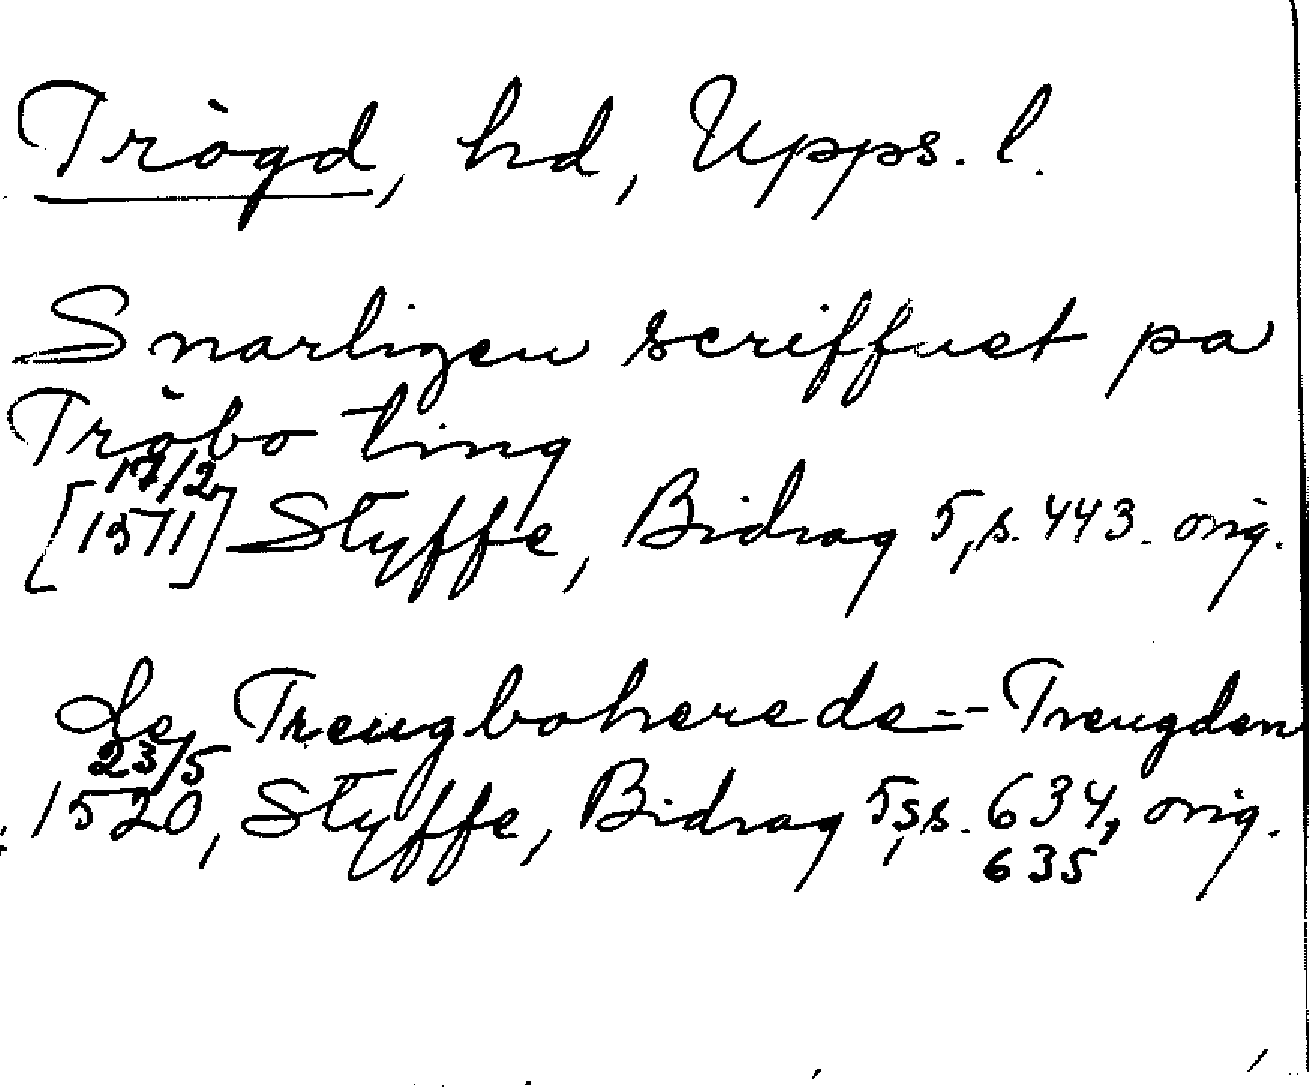 Trögd, hd, Upps. l.
Snarligen scriffuet pa
Tröbo ting
17/2
[1511] Styffe, Bidrag 5, s. 443. orig.
de Treugboherede =- Treugden
23/5
1520, Styffe, Bidrag 5, ss. 634, orig.
635